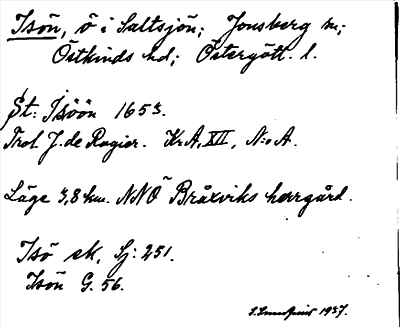 Isön, ö i Saltsjön; Jonsberg sn;
Östkinds hd; Östergötl. l.
St: Isöön 1653.
Trol. J. de Rogier. KrA, XII, N:o A.
Läge 3,8 km. NNÖ Bråxviks herrgård.
Isö ek, Sj: 251.
Isön G. 56.
1937.